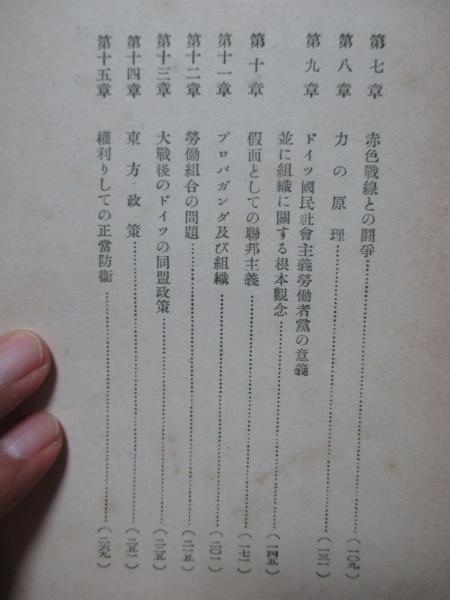 第七章 赤色戰線との鬪爭……………(一〇九)
第八章 力の原理……………(一三一)
第九章 ドイツ國民社會主義勞働者黨の意義
並に組織に關する根本觀念……………(一四五)
第十章 假面としての聯邦主義……………(一七一)
第十一章 プロパガンダ及び組織……………(二〇一)
第十二章 勞働組合の問題……………(二一五)
第十三章 大戰後のドイツの同盟政策……………(二三五)
第十四章 東方政策……………(二五一)
第十五章 權利りしての正當防衞……………(二六九)